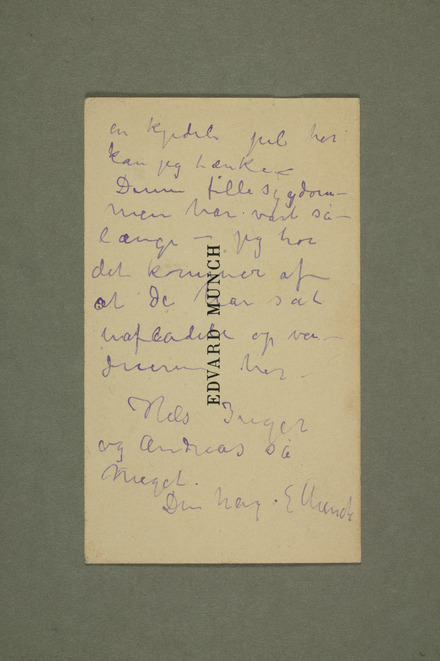 en kjedelig jul har
kan jeg tænke
Denne fille sygdom–
men har vært så–
længe – jeg tror
det kommer af
at De har sat
uafladelig op va–
her –
Hils Inger
og Andreas så
meget.
Din heng. E Munch
EDVARD MUNCH